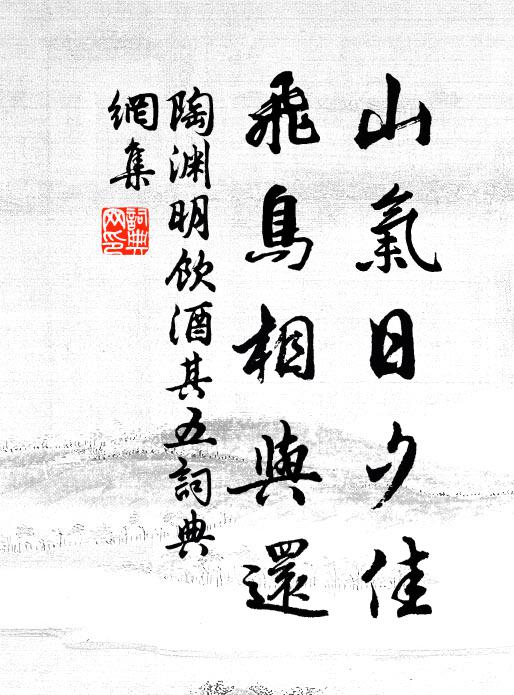 山氣日夕佳
飛鳥相與還
陶淵明飲酒其五詞典
網集
詞典
网印